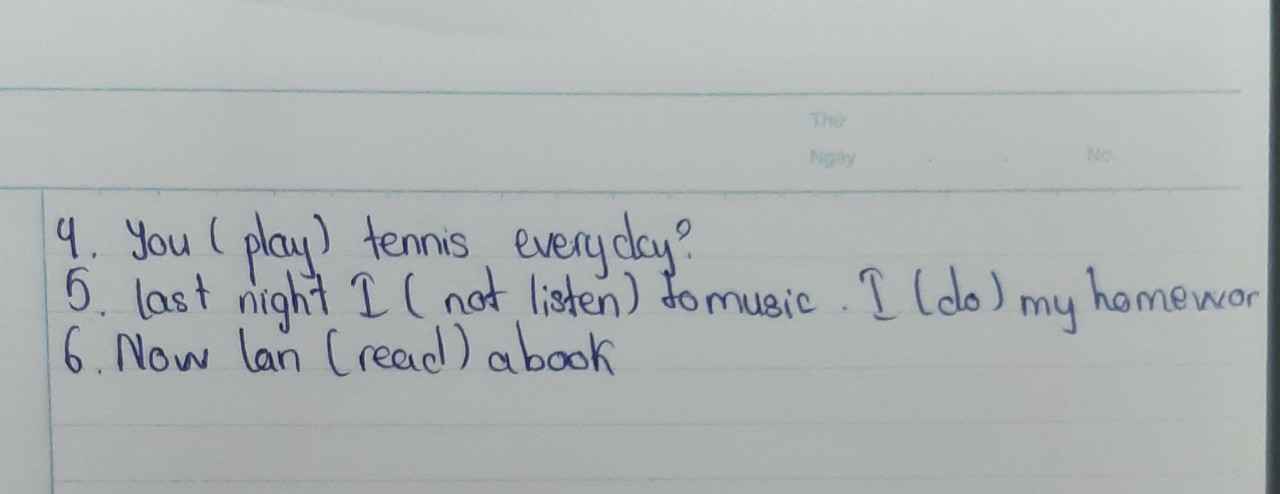 Thứ
Ngày . . No.
4. You ( play ) tennis everyday?
5. last night I ( not listen ) to music . I (do) my homewor
6. Now lan (read) a book